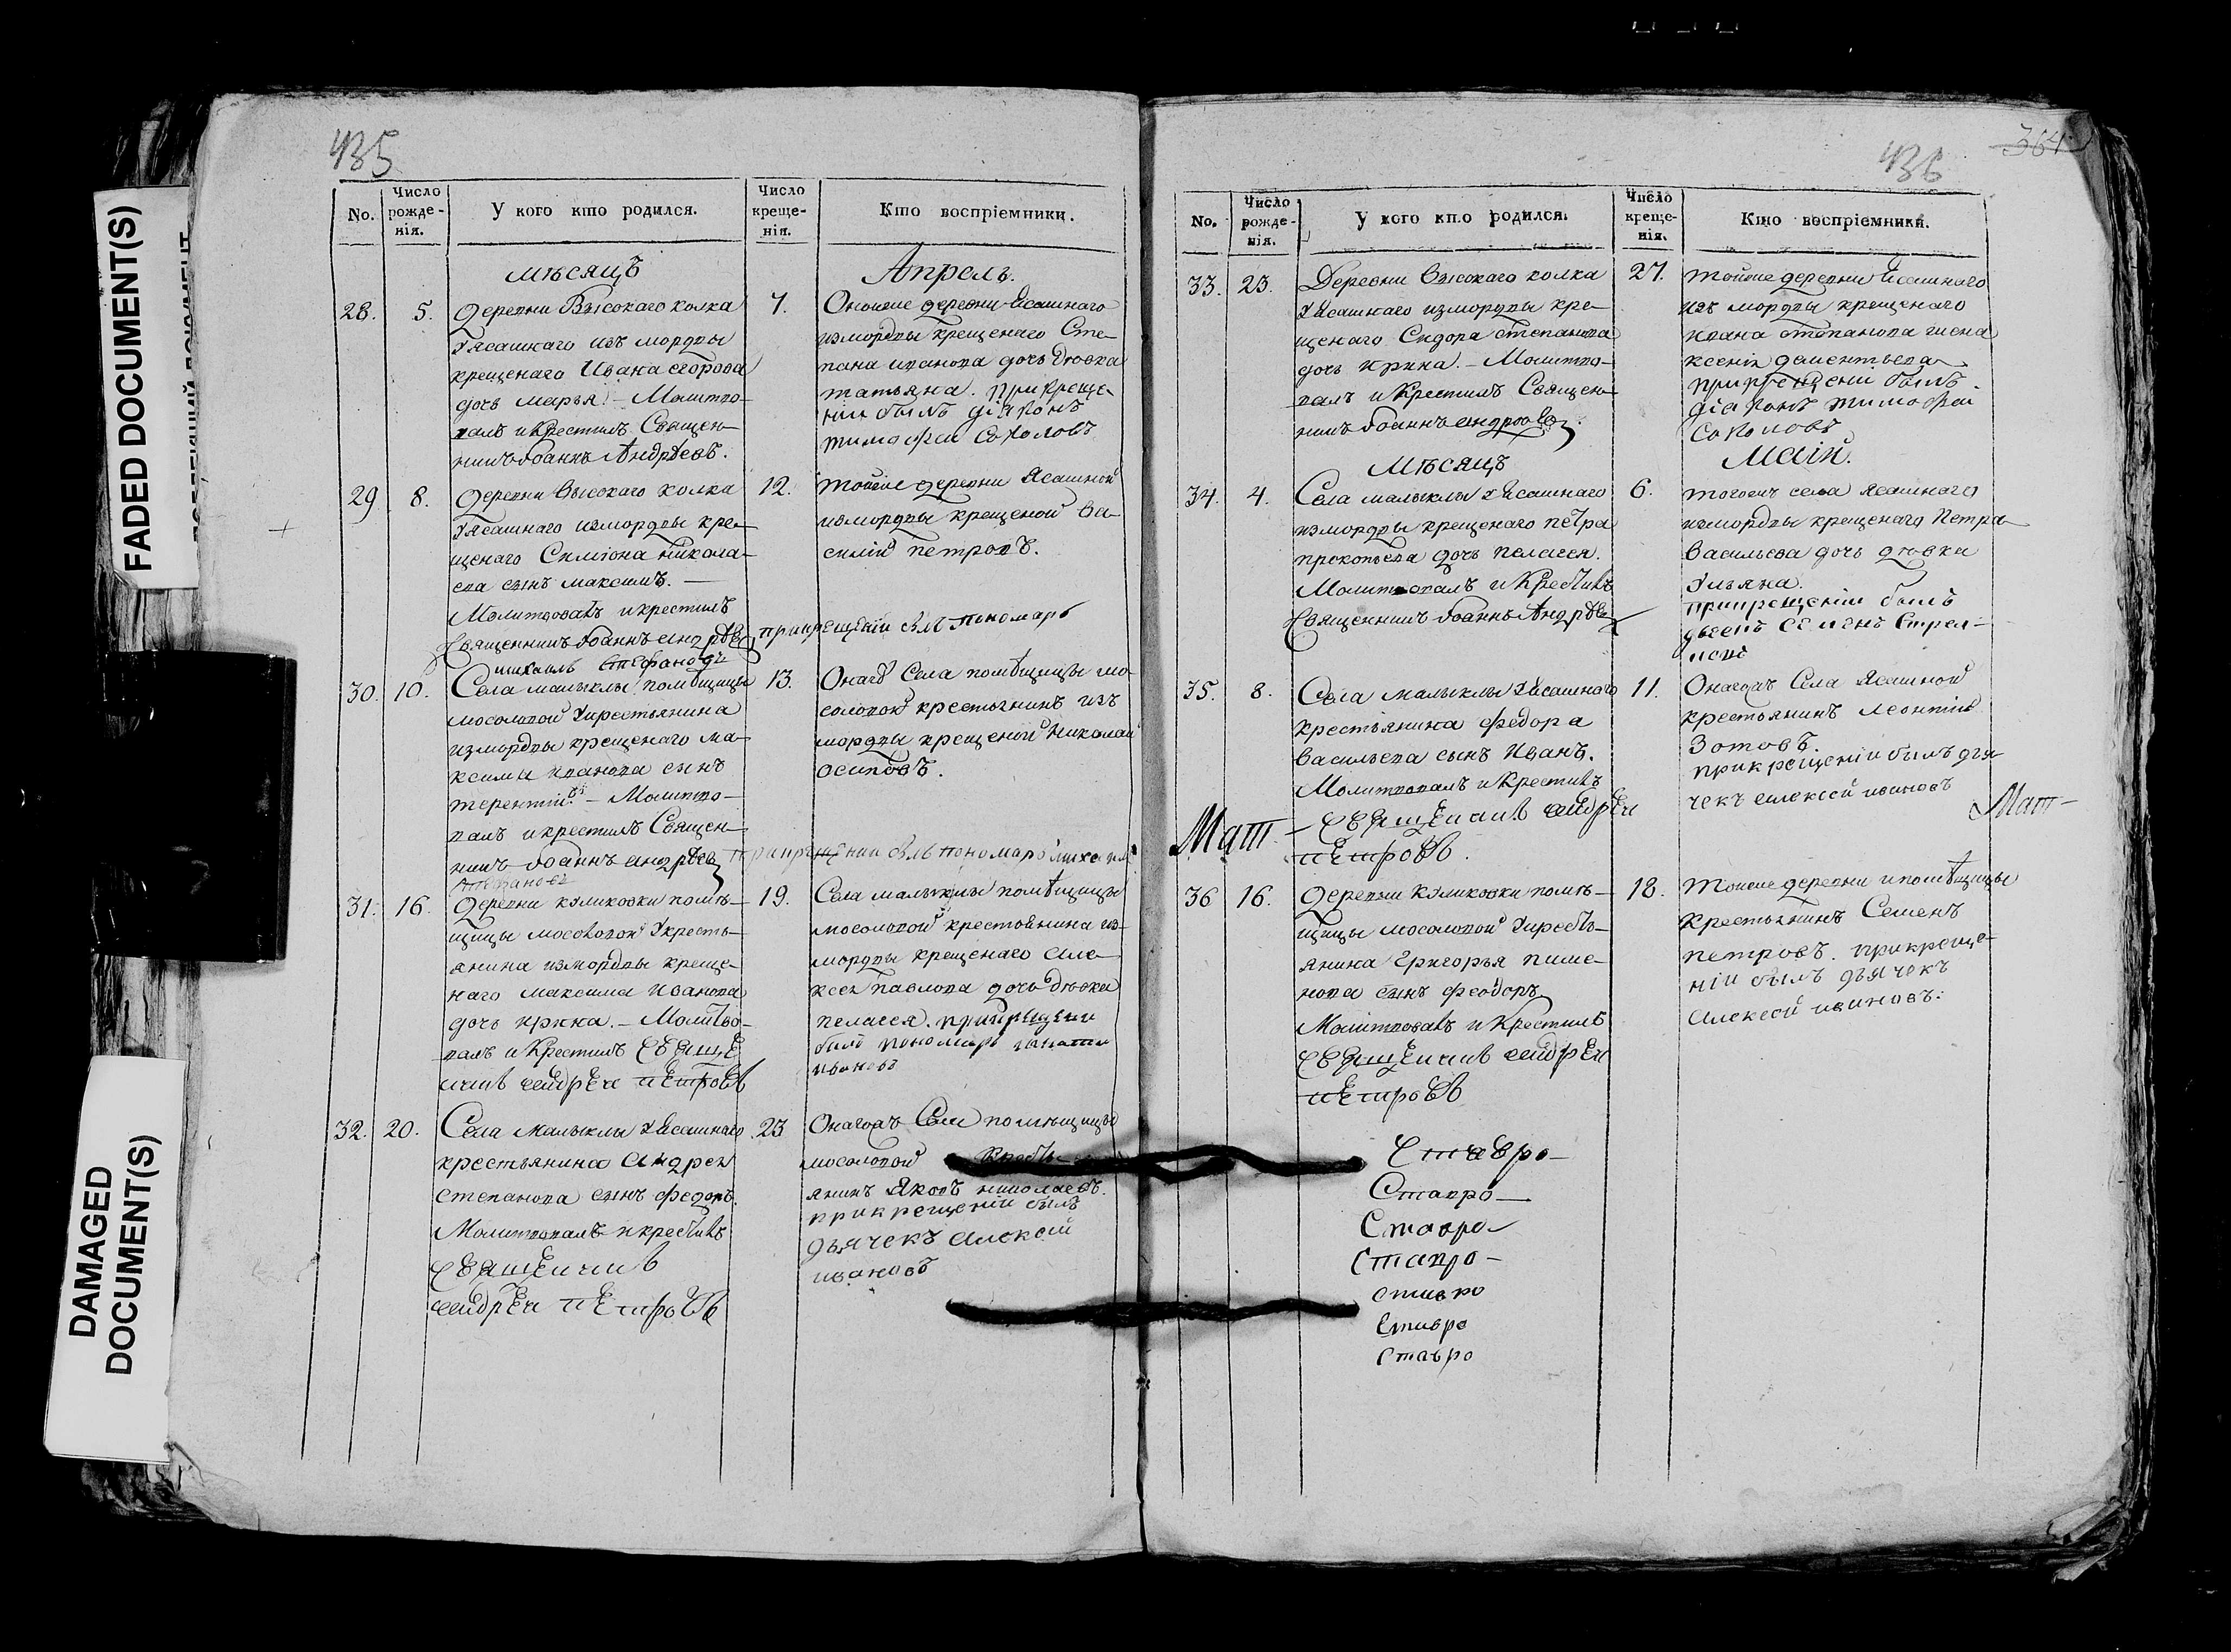 FADED DOCUMENT(S)
DAMAGED
DOCUMENT(S)
435
No.
Число рожде-нія.
У кого кто родился.
Число креще-нія.
Кто воспріемники.
мѣсяцъ
Апрель.
28. 5.
Деревни Высокаго колка
Уясашнаго изъ мордвы
крещенаго Ивана егорова
дочь марья. – Молитво-
валъ и Крестилъ Священ-
никъ Іоаннъ Андрѣевъ.
7.
Оноиже деревни Ясашнаго
измордвы крещенаго Сте-
пана иванова дочь дѣвка
татьяна. При креще-
ніи былъ діяконъ
тимофей Соколовъ
29 8.
деревни высокаго колка
Уясашнаго измордвы кре-
щенаго Симіона никола-
ева сынъ максимъ. —
Молитвовалъ икрестилъ
Священникъ Іоаннъ андрѣевъ
12.
тойже деревни Ясашной
измордвы крещеной Ва-
силій петровъ.
прикрещеніи былъ пономарь
михаилъ Стефановъ
30. 10.
Села малыклы помѣщицы
мосоловой Укрестьянина
измордвы крещенаго ма-
ксима иванова сынъ
терентій. – Молитво-
валъ икрестилъ Священ-
никъ Іоаннъ андрѣевъ
13.
Онагоже Села помѣщицы мо-
соловой крестьянинъ изъ
мордвы крещеной Николай
осиповъ.
прикрещении былъ пономарь михаилъ
Стефановъ
31. 16.
деревни куликовки помѣ-
щицы мосоловой Укресть-
янина измордвы креще-
наго максима Иванова
дочь ирина. – Молитво-
валъ и Крестилъ Священ-
никъ андрей петровъ
19.
Села малыклы помѣщицы
мосоловой крестьянина из-
мордвы крещенаго але-
ксея павлова дочь дѣвка
пелагея. прикрещени
былъ пономарь игнати
ивановъ
32. 20.
Села малыклы Уясашнаго
крестьянина андрея
степанова сынъ федоръ.
Молитвовалъ икрестилъ
Священникъ
андрей петровъ
23
Онагожъ Села помѣщицы
мосоловой кресть-
янинъ яковъ николаевъ.
прикрещеніи былъ
дьячекъ алексей
ивановъ
436
364
No.
Число рожде-нія.
У кого кто родился.
Число креще-нія.
Кто воспріемники.
33. 23.
Деревни высокаго колка
Уясашнаго измордвы кре-
щенаго Сидора степанова
дочь ирина. – Молитво-
валъ и Крестилъ Священ-
никъ Іоаннъ андрѣевъ.
27.
тойже деревни Ясашнаго
изъ мордвы крещенаго
ивана степанова жена
ксенія дементьева
прикрещеніи былъ
діяконъ тимофей
Соколовъ
Мѣсяцъ
Маій.
34. 4.
Села малыклы Уясашнаго
измордвы крещенаго петра
прокопьева дочь пелагея.
Молитвовалъ и Крестилъ
Священникъ Іоаннъ Андрѣевъ
6.
тогожъ села ясашнаго
измордвы крещенаго Петра
васильева дочь дѣвка
Ульяна.
прикрещеніи былъ
35. 8.
Села малыклы Уясашнаго
крестьянина федора
васильева сынъ Иванъ.
Молитвовалъ и Крестилъ
Священникъ андрей
петровъ.
11.
Онагожъ Села Ясашной
крестьянинъ леонтій
Зотовъ.
прикрещеніи былъ дья-
чекъ алексей ивановъ
Мат-
Мат-
36 16.
деревни куликовки помѣ-
щицы мосоловой Укресть-
янина григорья пиме-
нова сынъ феодоръ
Молитвовалъ и Крестилъ
Священникъ андрей
петровъ
18.
тоиже деревни ипомѣщицы
крестьянинъ Семенъ
петровъ. прикреще-
ніи былъ дьячекъ
алексей ивановъ:
Ставро-
Ставро-
Ставро-
Ставро-
ставро
Ставро
Ставро